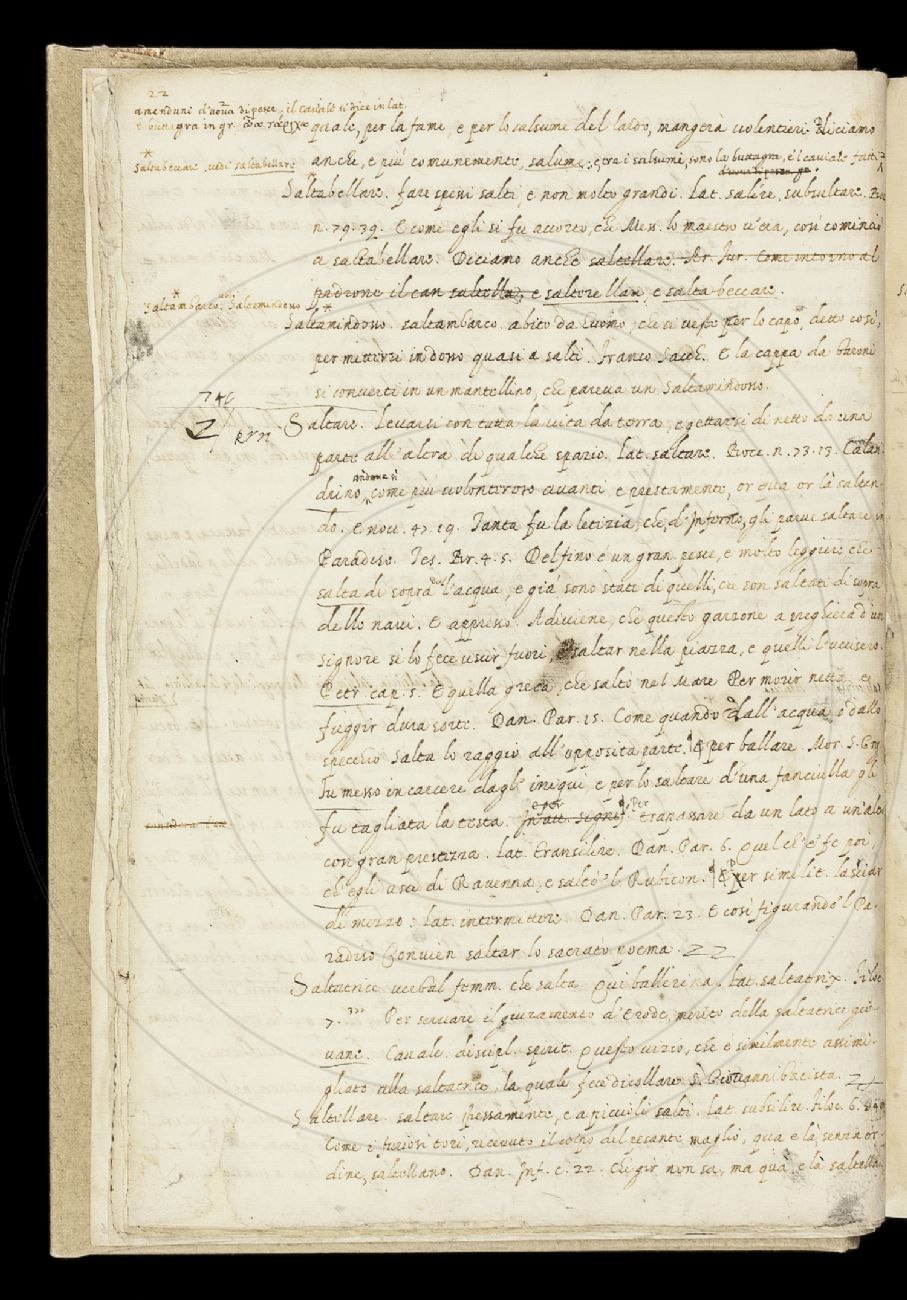 22
amenduni d'uova di pesce. il caviale si dice in lat.
e buttagra in gr. ὠὰ τάριχα
quale, per la fame, e per lo salsume del lardo, mangerà volentieri. Diciamo
* Saltabeccare. vedi saltabellare
anche, e più comunemente, salume, e tra i salumi, sono la buttagra, e'l caviale fatti
Saltabellare. fare spessi salti e non molto grandi. Lat. salire, subsultare. Bocc.
n. 79. 39. E come egli si fu accorto, che Mess. lo maestro v'era, così cominciò
a saltabellare. Diciamo anche saltellare. Ar. fur. Come intorno al
padrone il can saltella, e saltorellare, e salta beccare.
* Saltambarco. vedi Saltamindosso
Saltamindosso. saltambarco. abito da huomo, che si veste per lo capo, detto così,
per mettersi indosso quasi a salti. Franco Sacch. E la cappa da Baroni
si convertì in un mantellino, che pareva un Saltamindosso.
Saltare. Levarsi con tutta la vita da terra, e gettarsi di netto da una
parte all'altra di qualche spazio. Lat. saltare. Bocc. n. 73. 13. Calan
andonne sì
drino, come più volonteroso avanti, e prestamente, or qua or là saltan-
do. E nov. 47. 19. Tanta fu la letizia, che, d'Inferno, gli parve saltare in
Paradiso. Tes. Br. 4. 5. Delfino è un gran pesce, e molto leggiero che
salta di sopra dell'acqua, e già sono stati di quelli, che son saltati di sopra
delle navi. E appresso. Adiviene, che questo garzone a preghiera d'un
signore si lo fece uscir fuori, e saltar nella piazza, e quelli l'uccisero.
Petr. cap. 5. E quella greca, che saltò nel Mare Per morir netta, e
fuggir dura sorte. Dan. Par. 15. Come quando dall'acqua, o dallo
specchio Salta lo raggio all'opposita parte. ¶ E per ballare. Mor. S. Greg.
Fu messo in carcere dagl'iniqui, e per lo saltare d'una fanciulla gli
fu tagliata la testa. In att. signif. e per trapassare da un lato a un'alt
con gran prestezza. Lat. transilire. Dan. Par. 6. Quel ch'e' fe poi,
ch'egli uscì di Ravenna, e saltò 'l Rubicon. ¶ E per similit. lasciar
di mezzo: lat. intermittere. Dan. Par. 23. E così figurando 'l Pa-
radiso Convien saltar lo sacrato poema.
Saltatrice verbal femm. che salta. Qui ballerina. Lat. saltatrix. Filoc
7. Per servare il giuramento d'Erode, merito della saltatrice gio-
vane. Cavalc. discipl. spirit. Questo vizio, che è similmente assimi-
gliato alla saltatrice, la quale fece dicollare S. Giovanni batista.
Saltellare. saltare spessamente, e a piccioli salti. Lat. subsilire. Filoc. 6.
Come i furiosi tori, ricevuto il colpo del pesante maglio, qua e là senza or
dine, saltellano. Dan. Inf. c. 22. Che gir non sa, ma quà, e là saltella